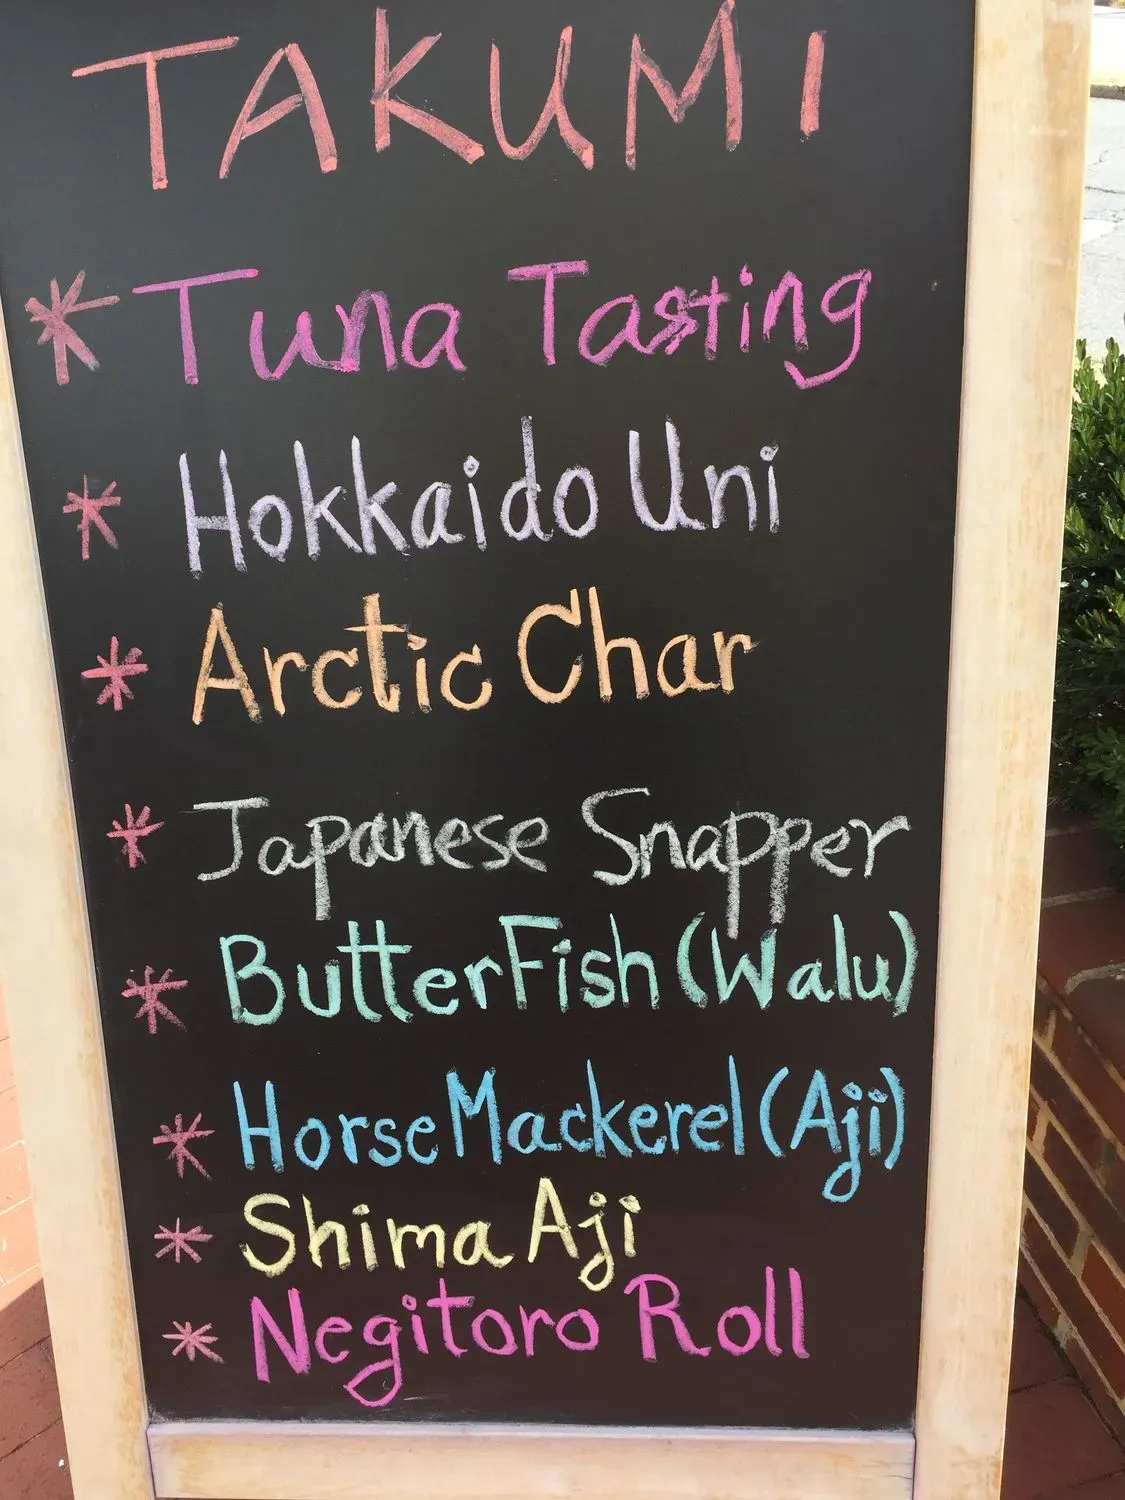 TAKUMI
* Tuna Tasting
* Hokkaido Uni
* Arctic Char
* Japanese Snapper
* ButterFish (Walu)
* Horse Mackerel (Aji)
* Shima Aji
* Negitoro Roll